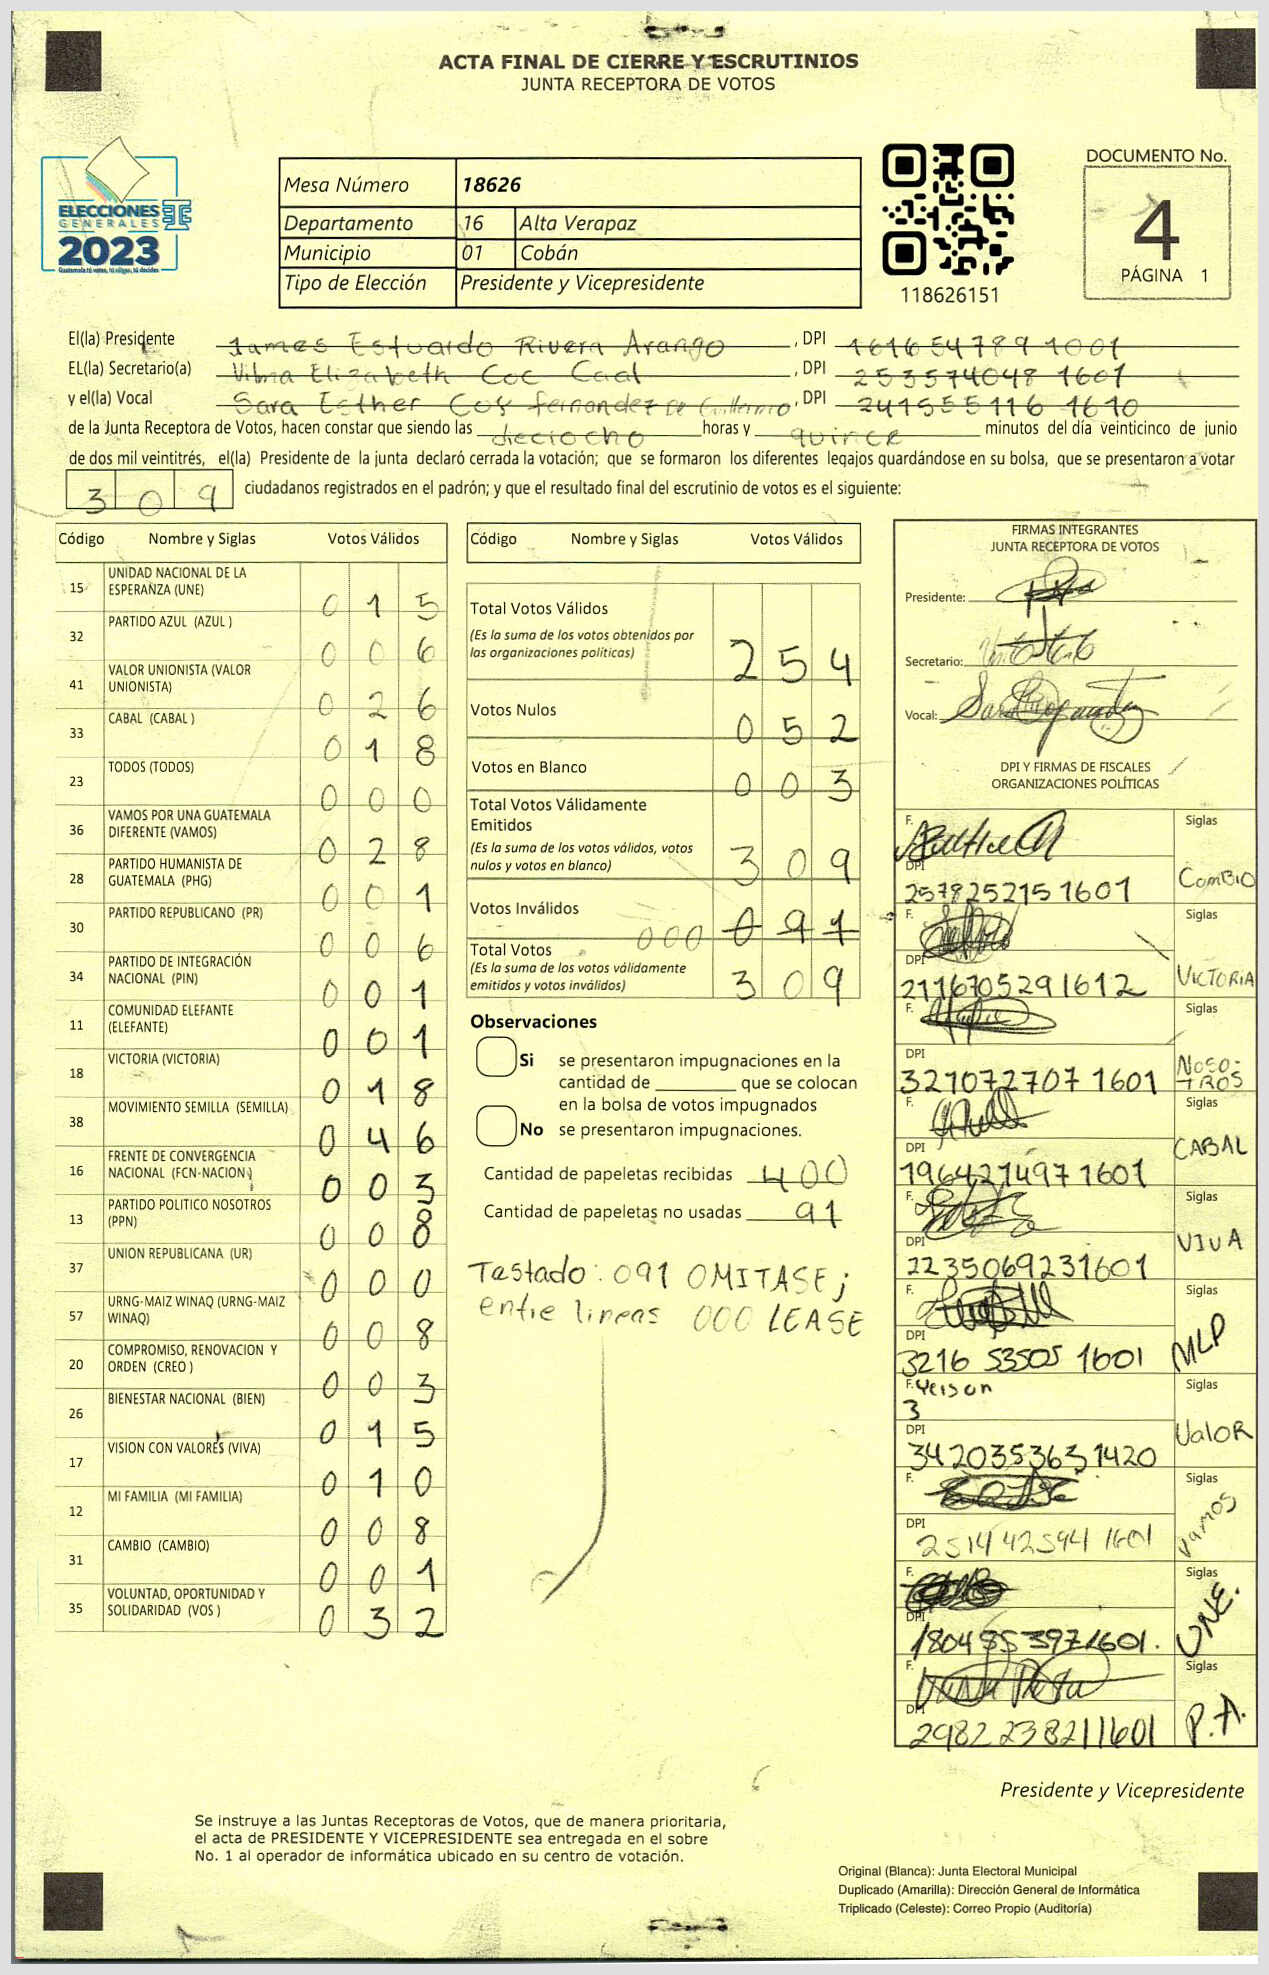 ACTA FINAL DE CIERRE Y ESCRUTINIOS
JUNTA RECEPTORA DE VOTOS
ELECCIONES
GENERALES
2023
Guatemala tú votas, tú eliges, tú decides
Mesa Número 18626
Departamento 16 Alta Verapaz
Municipio 01 Cobán
Tipo de Elección Presidente y Vicepresidente
118626151
DOCUMENTO No.
4
PÁGINA 1
El(la) Presidente James Estuardo Rivera Arango, DPI 161654789 1001
EL(la) Secretario(a) Vilma Elizabeth Coc Caal, DPI 253574048 1601
y el(la) Vocal Sara Esther Coy fernandez De Guillermo, DPI 241555116 1610
de la Junta Receptora de Votos, hacen constar que siendo las dieciocho horas y quince minutos del día veinticinco de junio
de dos mil veintitrés, el(la) Presidente de la junta declaró cerrada la votación; que se formaron los diferentes legajos guardándose en su bolsa, que se presentaron a votar
309 ciudadanos registrados en el padrón; y que el resultado final del escrutinio de votos es el siguiente:
Código Nombre y Siglas Votos Válidos
15 UNIDAD NACIONAL DE LA ESPERANZA (UNE) 015
32 PARTIDO AZUL (AZUL ) 006
41 VALOR UNIONISTA (VALOR UNIONISTA) 026
33 CABAL (CABAL ) 018
23 TODOS (TODOS) 000
36 VAMOS POR UNA GUATEMALA DIFERENTE (VAMOS) 028
28 PARTIDO HUMANISTA DE GUATEMALA (PHG) 001
30 PARTIDO REPUBLICANO (PR) 006
34 PARTIDO DE INTEGRACIÓN NACIONAL (PIN) 001
11 COMUNIDAD ELEFANTE (ELEFANTE) 001
18 VICTORIA (VICTORIA) 018
38 MOVIMIENTO SEMILLA (SEMILLA) 046
16 FRENTE DE CONVERGENCIA NACIONAL (FCN-NACION) 003
13 PARTIDO POLITICO NOSOTROS (PPN) 008
37 UNION REPUBLICANA (UR) 000
57 URNG-MAIZ WINAQ (URNG-MAIZ WINAQ) 008
20 COMPROMISO, RENOVACION Y ORDEN (CREO ) 003
26 BIENESTAR NACIONAL (BIEN) 015
17 VISION CON VALORES (VIVA) 010
12 MI FAMILIA (MI FAMILIA) 008
31 CAMBIO (CAMBIO) 001
35 VOLUNTAD, OPORTUNIDAD Y SOLIDARIDAD (VOS ) 032
Código Nombre y Siglas Votos Válidos
Total Votos Válidos
(Es la suma de los votos obtenidos por
las organizaciones políticas) 254
Votos Nulos 052
Votos en Blanco 003
Total Votos Válidamente
Emitidos
(Es la suma de los votos válidos, votos
nulos y votos en blanco) 309
Votos Inválidos 000 091
Total Votos
(Es la suma de los votos válidamente
emitidos y votos inválidos) 309
Observaciones
Si se presentaron impugnaciones en la
cantidad de ________ que se colocan
en la bolsa de votos impugnados
No se presentaron impugnaciones.
Cantidad de papeletas recibidas 400
Cantidad de papeletas no usadas 91
Testado: 091 OMITASE;
entre lineas 000 LEASE
FIRMAS INTEGRANTES
JUNTA RECEPTORA DE VOTOS
Presidente:
Secretario:
Vocal:
DPI Y FIRMAS DE FISCALES
ORGANIZACIONES POLÍTICAS
F. Siglas
DPI 2578252151601 COMBIO
F. Siglas
DPI 2116705291612 VICTORIA
F. Siglas
DPI 321072707 1601 NOSO-
TROS
F. Siglas
DPI 1964214971601 CABAL
F. Siglas
DPI 2235069231601 VIVA
F. Siglas
DPI 3216 53505 1601 MLP
F. Yeison Siglas
3
DPI 3420353631420 Valor
F. Siglas
DPI 2514425941601 VAMOS
F. Siglas
DPI 1804853971601. UNE.
F. Siglas
DPI 2982238211601 P.A.
Presidente y Vicepresidente
Se instruye a las Juntas Receptoras de Votos, que de manera prioritaria,
el acta de PRESIDENTE Y VICEPRESIDENTE sea entregada en el sobre
No. 1 al operador de informática ubicado en su centro de votación.
Original (Blanca): Junta Electoral Municipal
Duplicado (Amarilla): Dirección General de Informática
Triplicado (Celeste): Correo Propio (Auditoría)